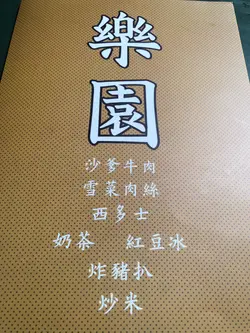 樂
園
沙爹牛肉
雪菜肉絲
西多士
奶茶 紅豆冰
炸豬扒
炒米